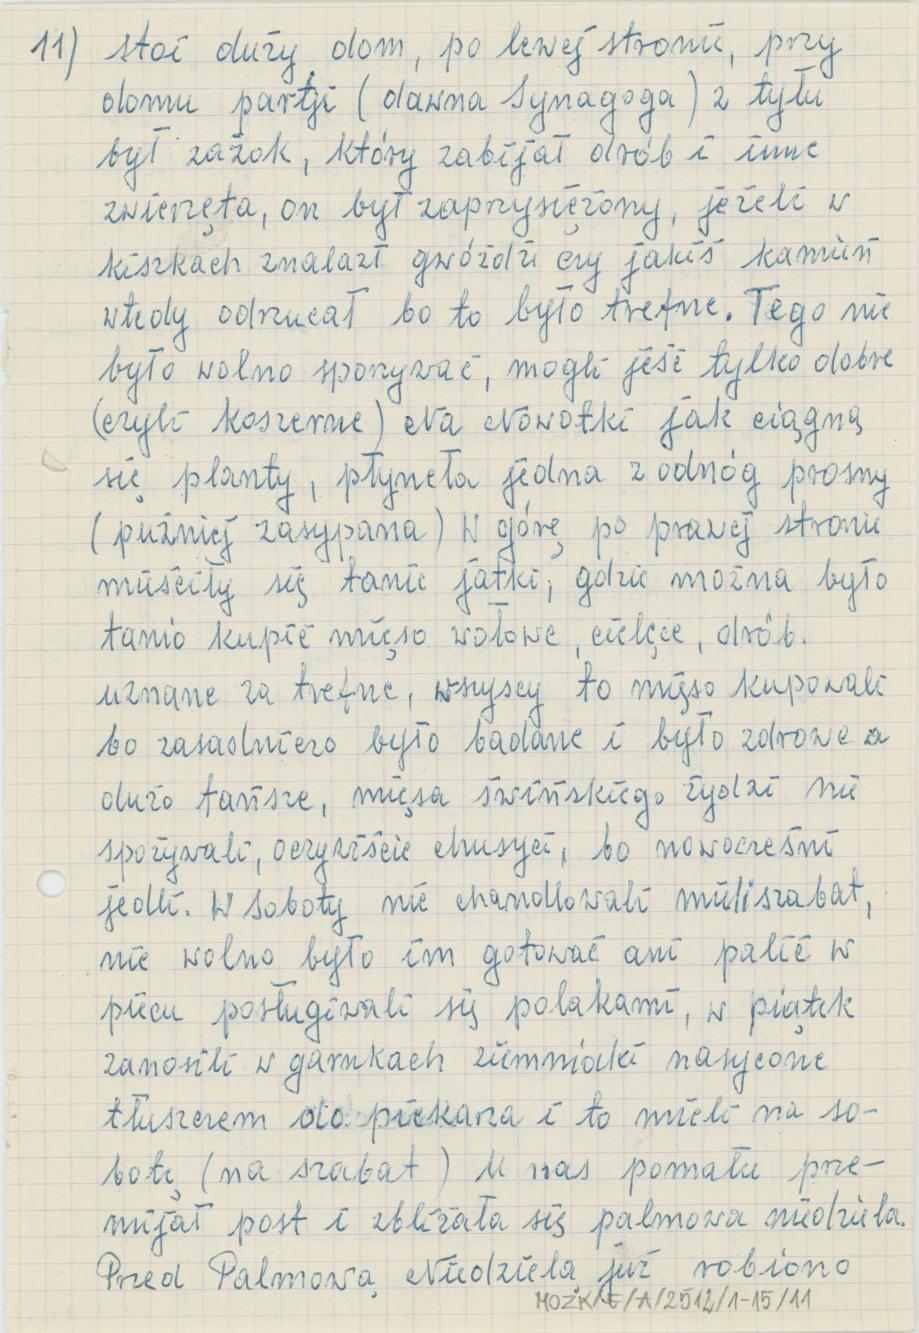 11) stoi duży dom, po lewej stronie, przy
domu partji (dawna Synagoga) z tyłu
był zażok, który zabijał drób i inne
zwierzęta, on był zaprzysiężony, jeżeli w
kiszkach znalazł gwóźdź czy jakiś kamień
wtedy odrzucał bo to było trefne. Tego nie
było wolno sporzywać, mogli jeść tylko dobre
(czyli koszerne) Na Nowotki jak ciągną
się planty, płyneła jedna z odnóg prosny
(puźniej zasypana) W górę po prawej stronie
mieściły się tanie jatki, gdzie można było
tanio kupić mięso wołowe, cielęce, drób.
uznane za trefne, wszyscy to mięso kupowali
bo zasadniczo było badane i było zdrowe a
dużo tańsze, mięsa świńskiego żydzi nie
spożywali, oczywiście chusyci, bo nowocześni
jedli. W soboty nie chandlowali mieli szabat,
nie wolno było im gotować ani palić w
piecu posługiwali się polakami, w piątek
zanosili w garnkach ziemniaki nasycone
tłuszczem do piekarza i to mieli na so-
botę (na szabat) U nas pomału prze-
mijał post i zbliżała się palmowa niedziela.
Przed Palmową Niedzielą już robiono
MOZK/E/A/2512/1-15/11